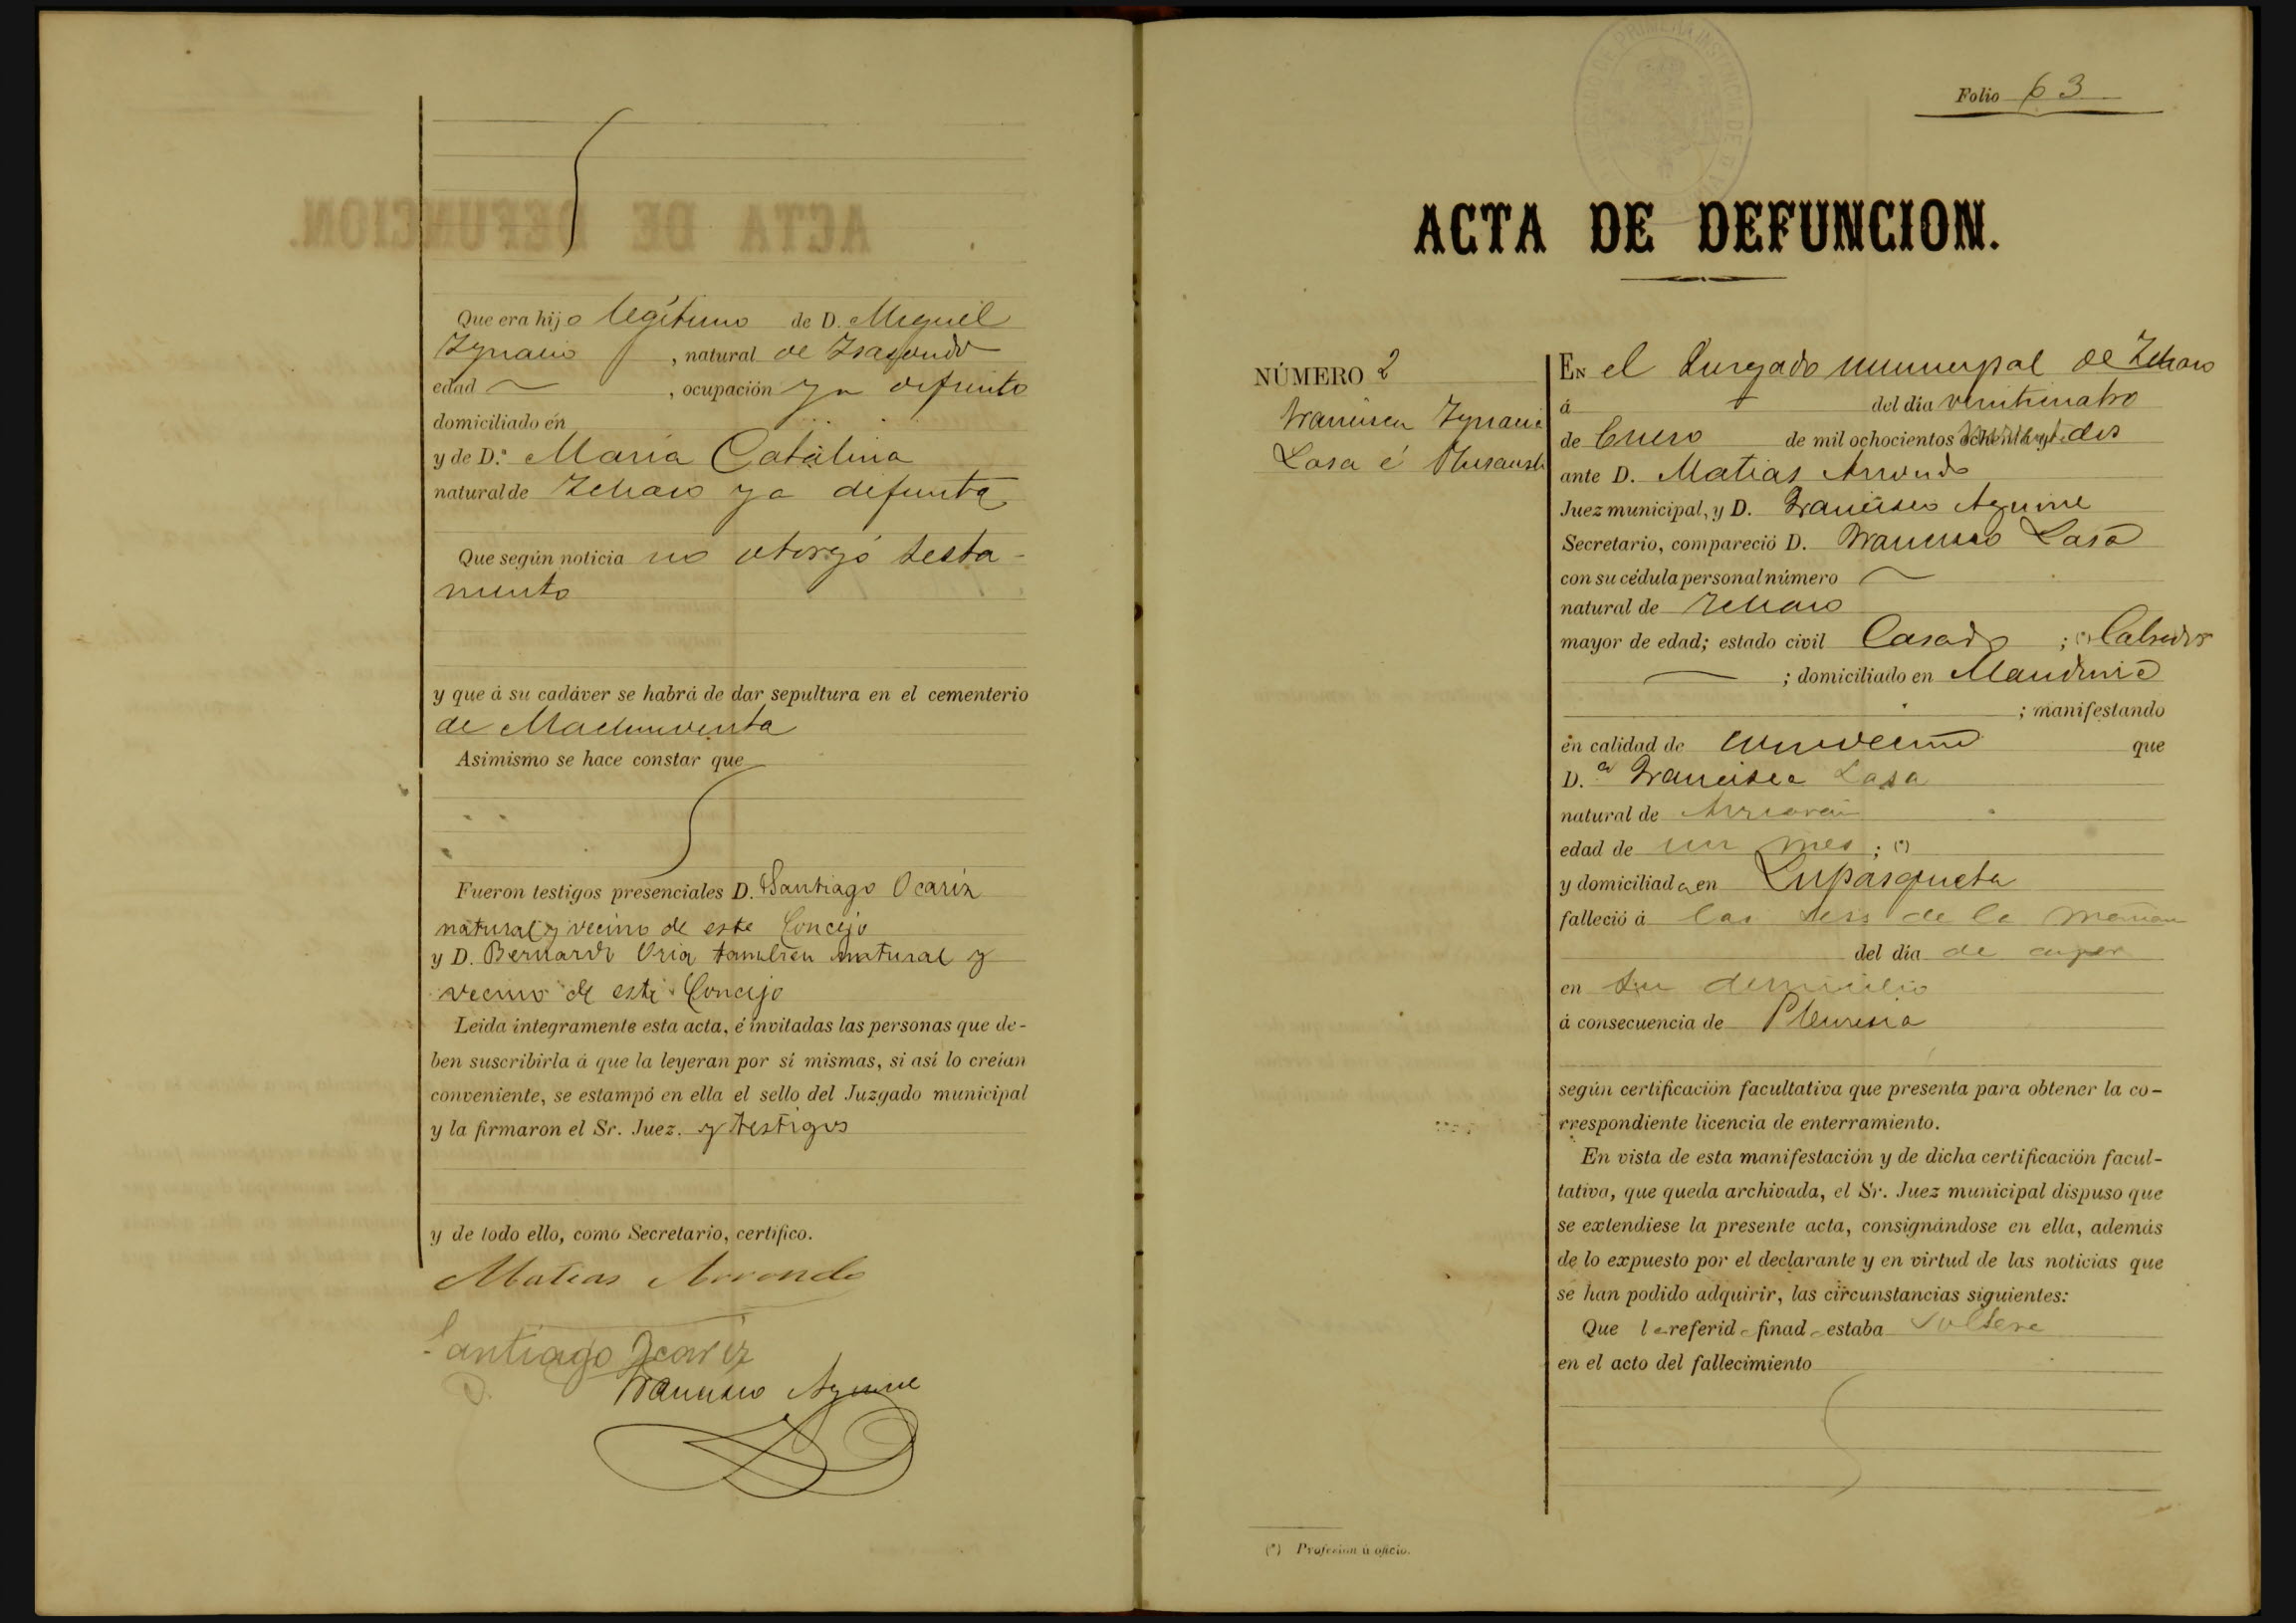 Que era hijo legítimo de D. Miguel
Ygnacio, natural de Ysasondo
edad, ocupación ya difunto
domiciliado en
y de D.ª Maria Catalina
natural de Ychaso ya difunta
Que según noticia no otorgó testa-
mento
y que á su cadáver se habrá de dar sepultura en el cementerio
de
Asimismo se hace constar que
Fueron testigos presenciales D. Santiago Ocariz
natural y vecino de este Concejo
y D. Bernardo Oria tambien natural y
vecino de este Concejo
Leida íntegramente esta acta, é invitadas las personas que de-
ben suscribirla á que la leyeran por sí mismas, si así lo creían
conveniente, se estampó en ella el sello del Juzgado municipal
y la firmaron el Sr. Juez. y testigos
y de todo ello, como Secretario, certifico.
Matias Arrondo
Santiago Ocariz
Francisco Aguirre
Folio 63
ACTA DE DEFUNCION.
NÚMERO 2
Francisca Ygnacia
Lasa é
EN el Juzgado municipal de Ychaso
á del día veinticuatro
de Enero de mil ochocientos dos
ante D. Matias Arrondo
Juez municipal, y D. Francisco Aguirre
Secretario, compareció D. Francisco Lasa
con su cédula personal número
natural de Ychaso
mayor de edad; estado civil Casado; (*) Labrador
; domiciliado en
; manifestando
en calidad de que
D.ª Francisca Lasa
natural de Arriaran
edad de un mes; (*)
y domiciliada en Lupasqueta
falleció á las de la mañana
del día de ayer
en su domicilio
á consecuencia de Pleuresia
según certificación facultativa que presenta para obtener la co-
rrespondiente licencia de enterramiento.
En vista de esta manifestación y de dicha certificación facul-
tativa, que queda archivada, el Sr. Juez municipal dispuso que
se extendiese la presente acta, consignándose en ella, además
de lo expuesto por el declarante y en virtud de las noticias que
se han podido adquirir, las circunstancias siguientes:
Que la referida finada estaba soltera
en el acto del fallecimiento
(*) Profesion ú oficio.